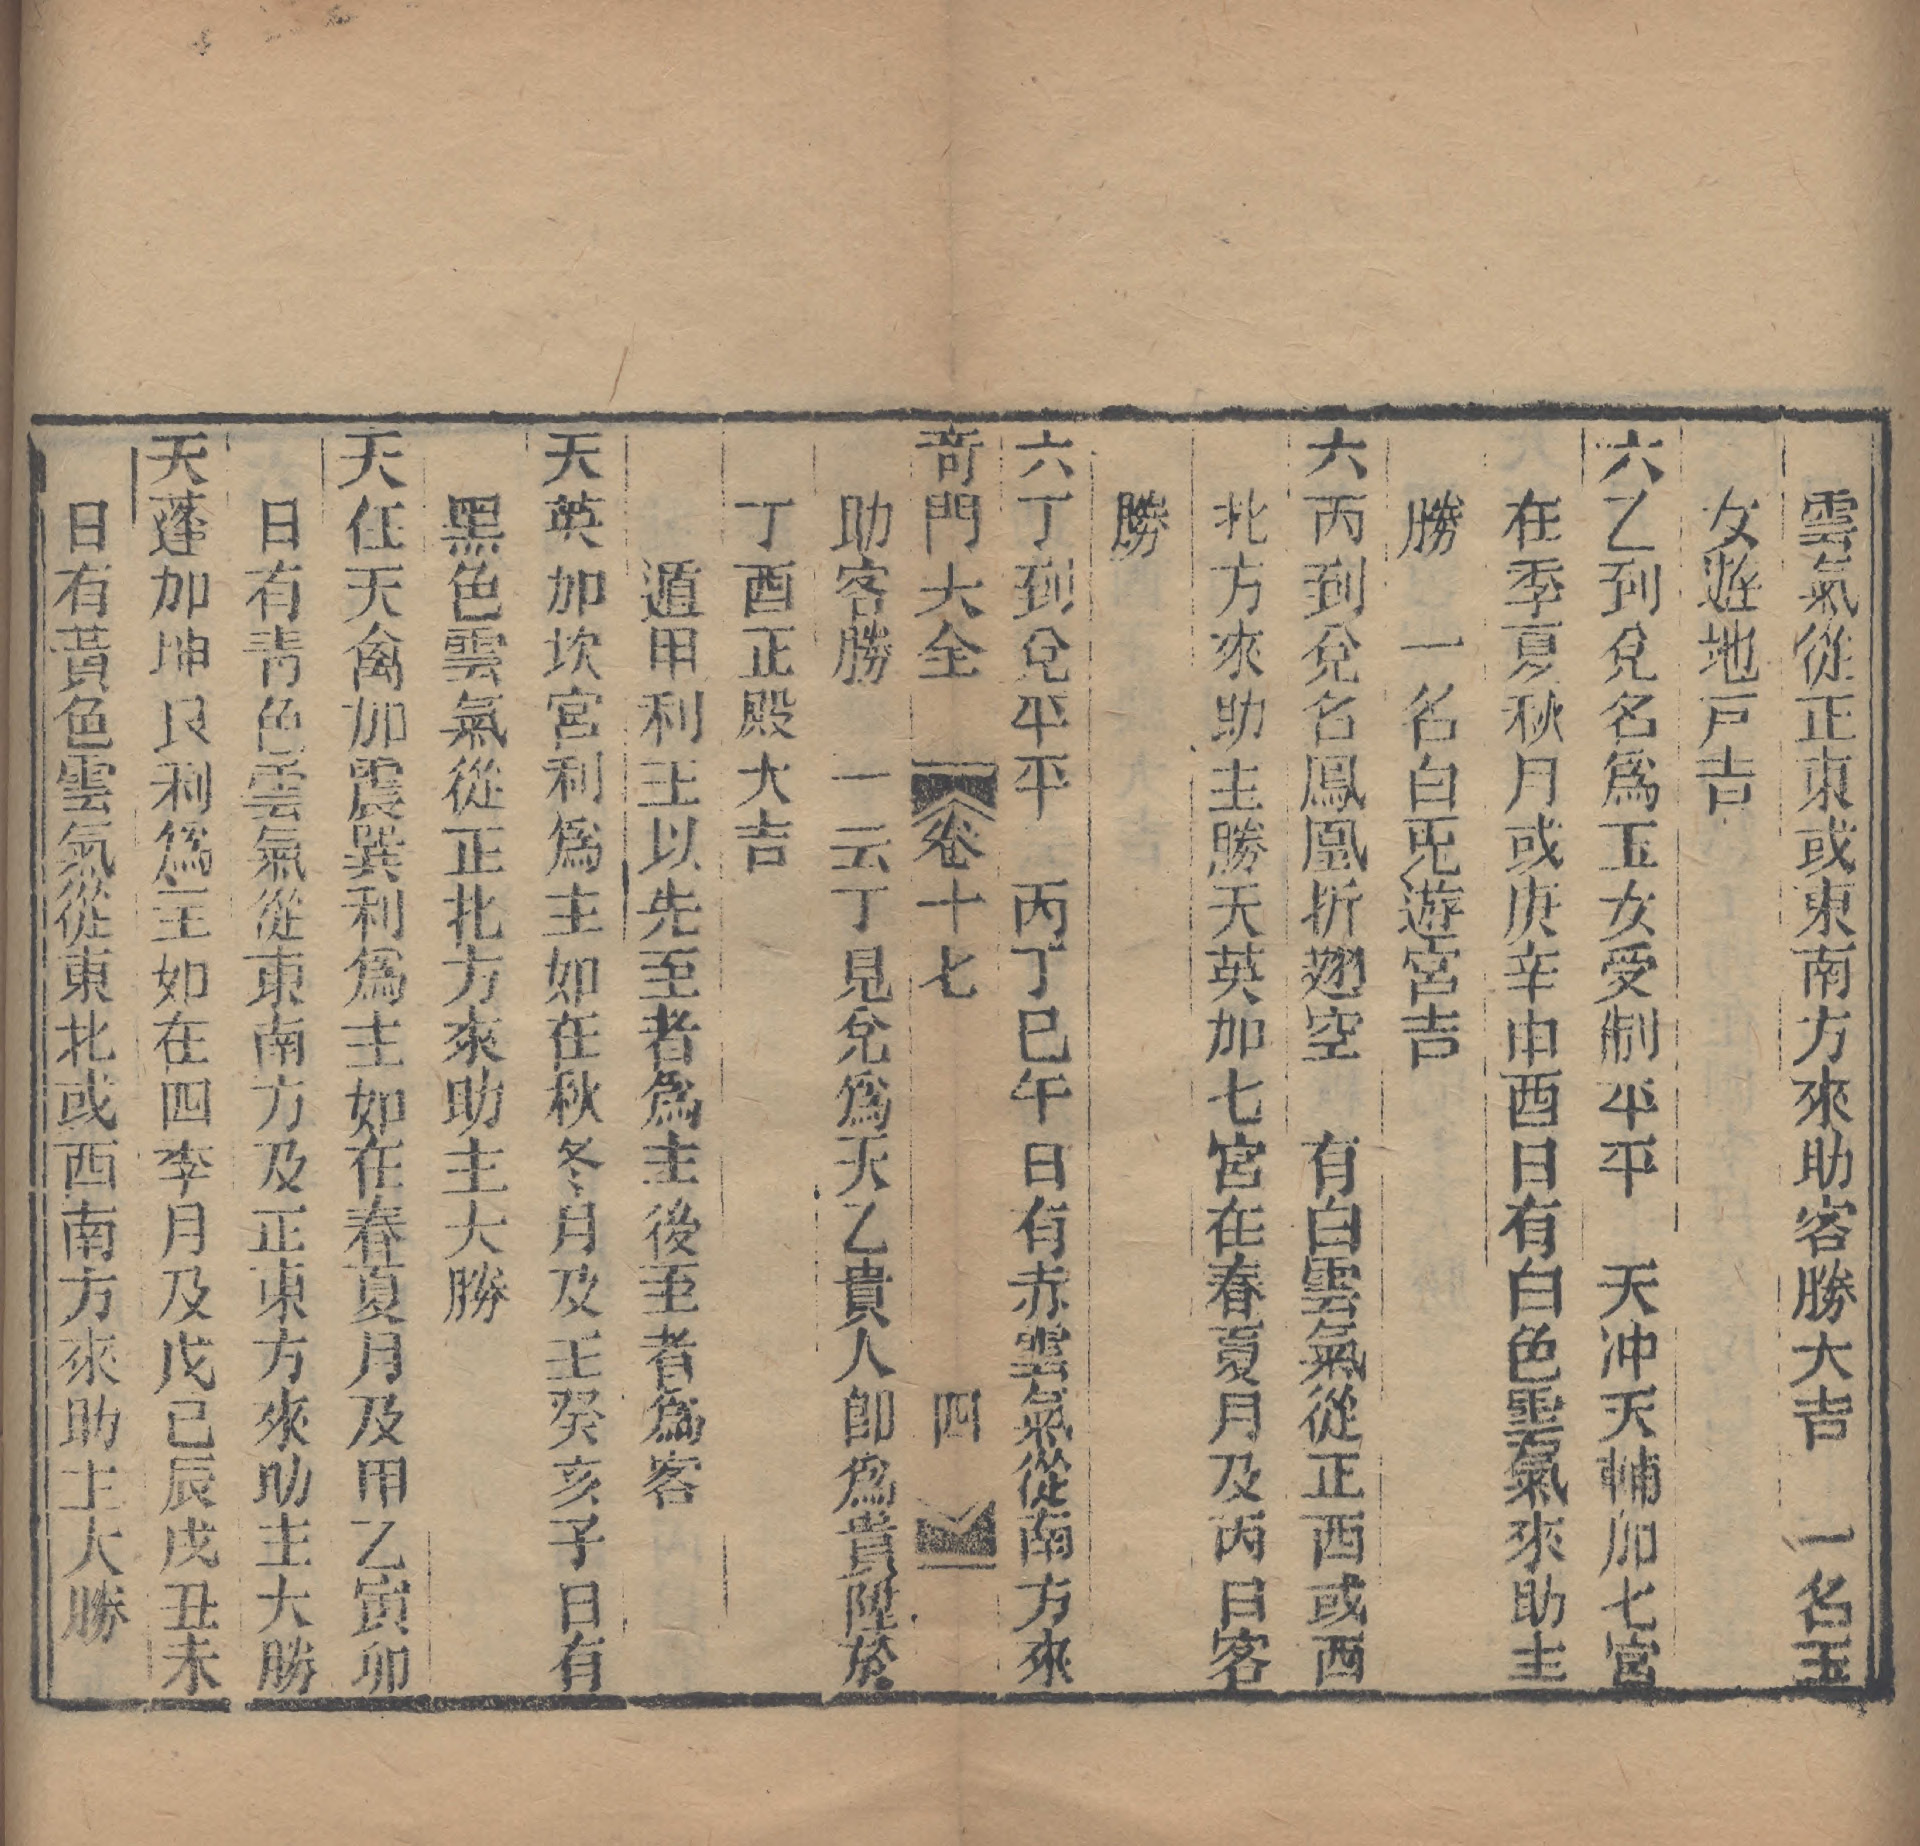 雲氣從正東或東南方來助客勝大吉　一名玉
女遊地戸吉
六乙到兌名爲玉女受制平平　天冲天輔加七宮
在季夏秋月或庚辛申酉日有白色雲氣來助主
勝　一名白兎遊宮吉
六丙到兌名鳳凰折翅空　有白雲氣從正西或西
北方來助主勝天英加七宮在春夏月及丙日客
勝
六丁到兌平平　丙丁巳午日有赤雲氣從南方來
奇門大全　卷十七　四
助客勝　一云丁見兌爲天乙貴人卽爲貴陞於
丁酉正殿大吉
遁甲利主以先至者爲主後至者爲客
天英加坎宮利爲主如在秋冬月及壬癸亥子日有
黑色雲氣從正北方來助主大勝
天任天禽加震巽利爲主如在春夏月及甲乙寅卯
日有靑色雲氣從東南方及正東方來助主大勝
天蓬加坤艮利爲主如在四季月及戊己辰戌丑未
日有黃色雲氣從東北或西南方來助主大勝